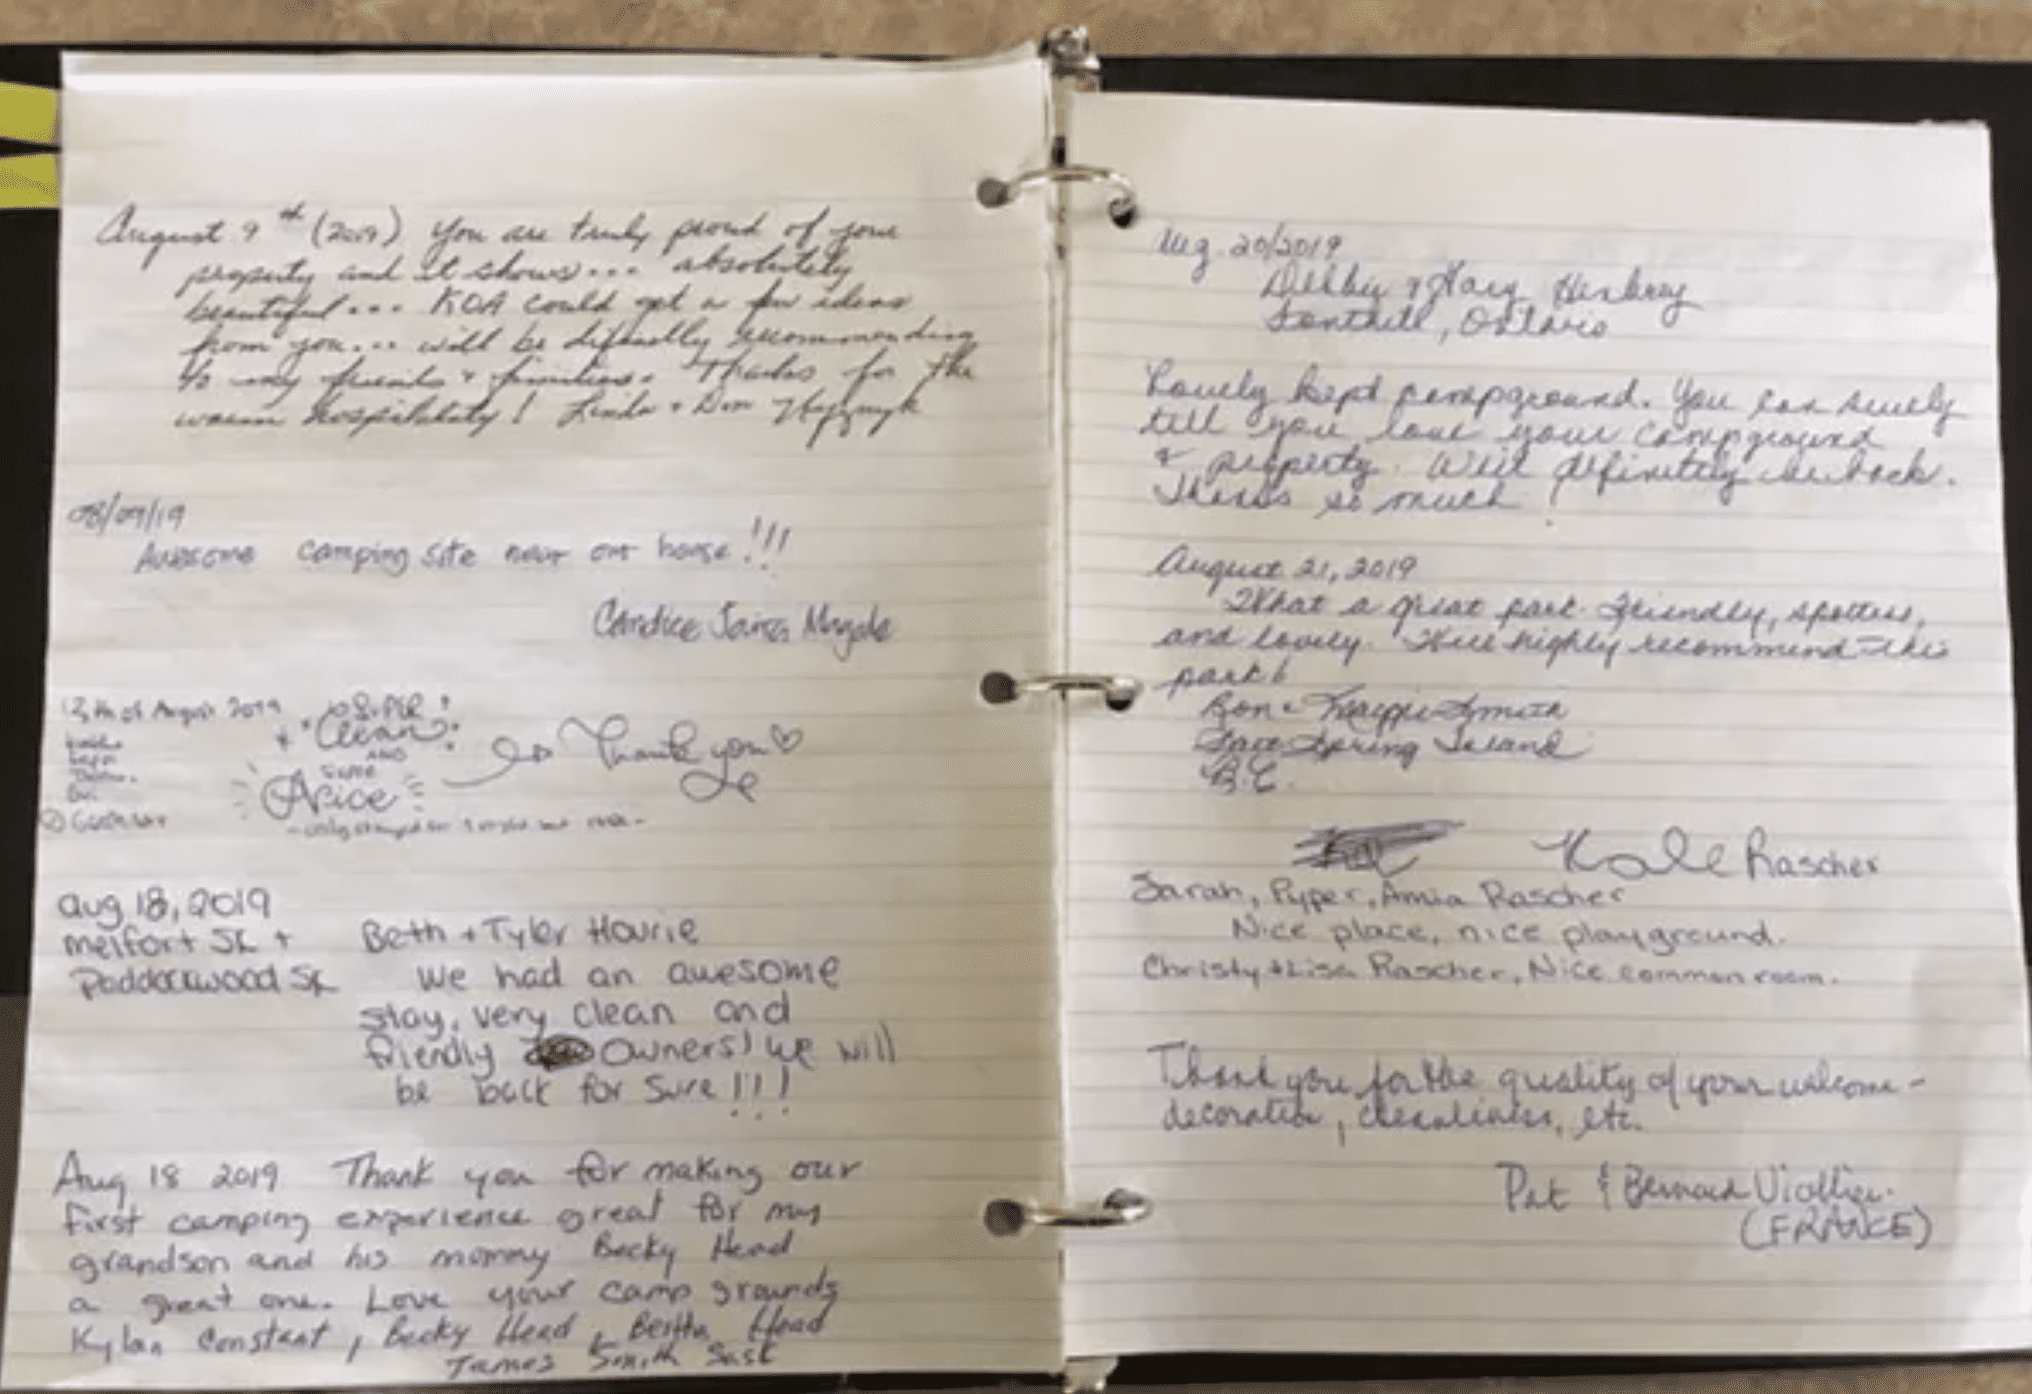 August 9th (2019) You are truly proud of your
property and it shows... absolutely
beautiful... KOA could get a few ideas
from you... will be difinelly recommending
to my friends + families. Thanks for the
warm hospitality! Linda + Don
08/09/19
Awesome camping site near our house!!!
Candice James
13th of August 2019
Super
Clean
AND
Super
Nice
Thank you
Aug 18, 2019
Melfort SK +
Paddockwood SK
Beth + Tyler Hourie
We had an awesome
stay, very clean and
friendly owners! We will
be back for sure!!!
Aug 18 2019 Thank you for making our
first camping experience great for my
grandson and his mommy Becky Head
a great one. Love your camp grounds
Kylan Constant, Becky Head, Bertha Head
James Smith Sask
Aug. 20/2019
Debby & Gary
Fonthill, Ontario
Lovely kept campground. You can surely
tell you love your campground
& property. Will definitely be back.
Thanks so much!
August 21, 2019
What a great park. Friendly, spotless,
and lovely. Will highly recommend this
park!
Ron & Smith
Salt Spring Island
B.C.
Kale Rascher
Sarah, Pyper, Amia Rascher
Nice place, nice playground.
Christy + Lisa Rascher, Nice common room.
Thank you for the quality of your welcome -
decoration, cleanliness, etc.
Pat & Bernard Viollier
(FRANCE)